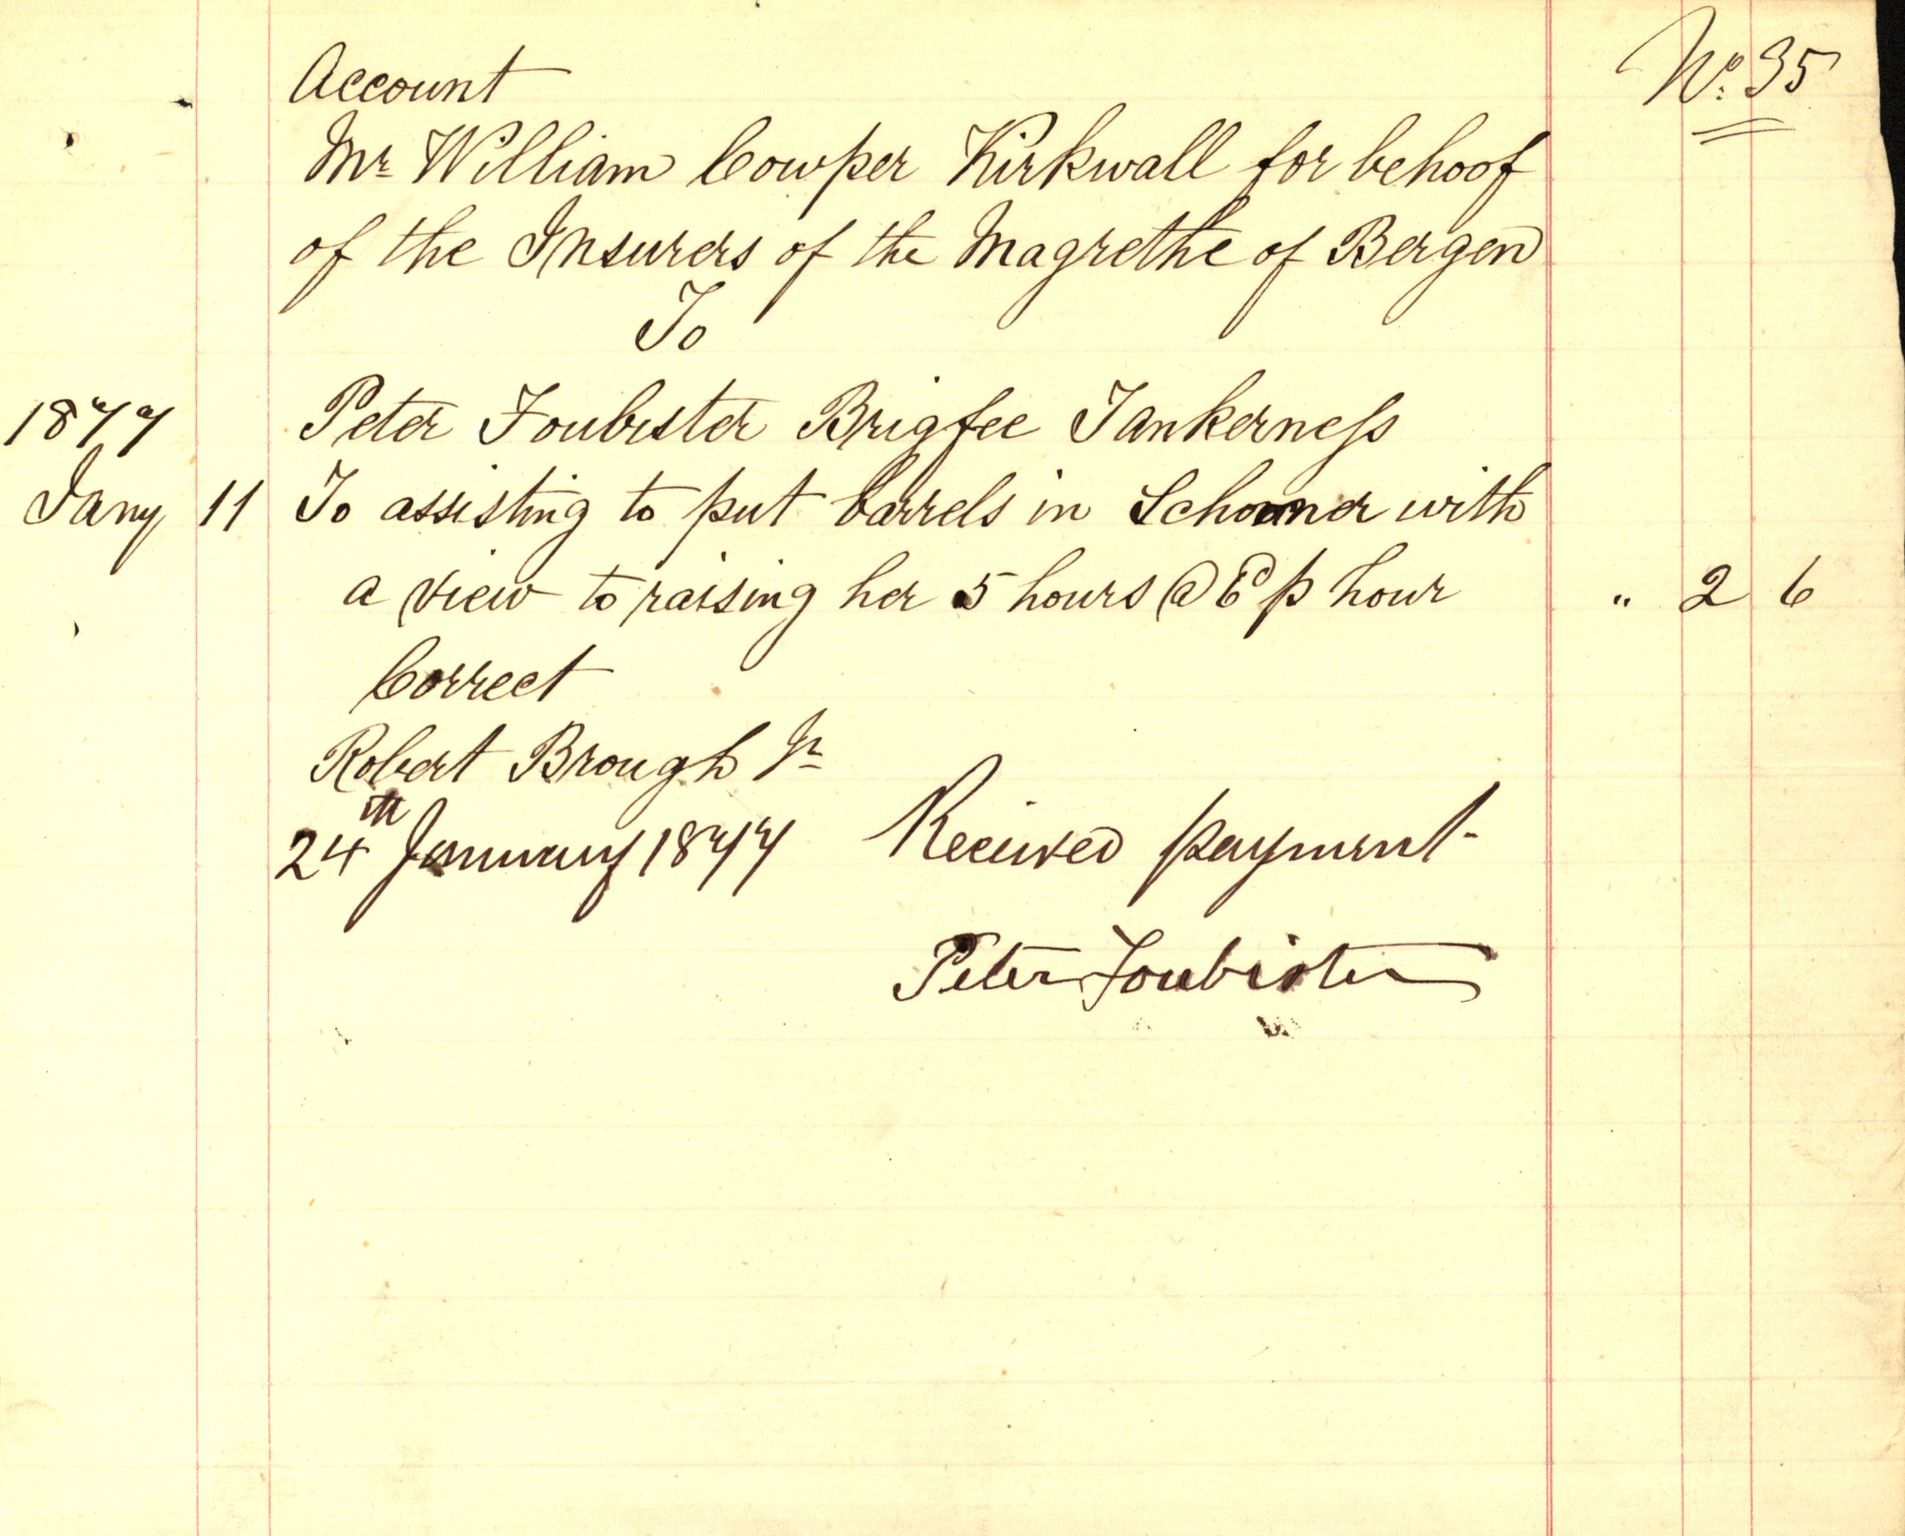 No. 35
Account
Mr William Cowper Kirkwall for behoof
of the Insurers of the Magrethe of Bergen
To
1877 Peter Foubister Brigfee Tankerness
Jany 11 To assisting to put barrels in Schooner with
a view to raising her 5 hours @ 6d p hour " 2 6
Correct
Robert Brough Jr
24th January 1877 Received payment
Peter Foubister